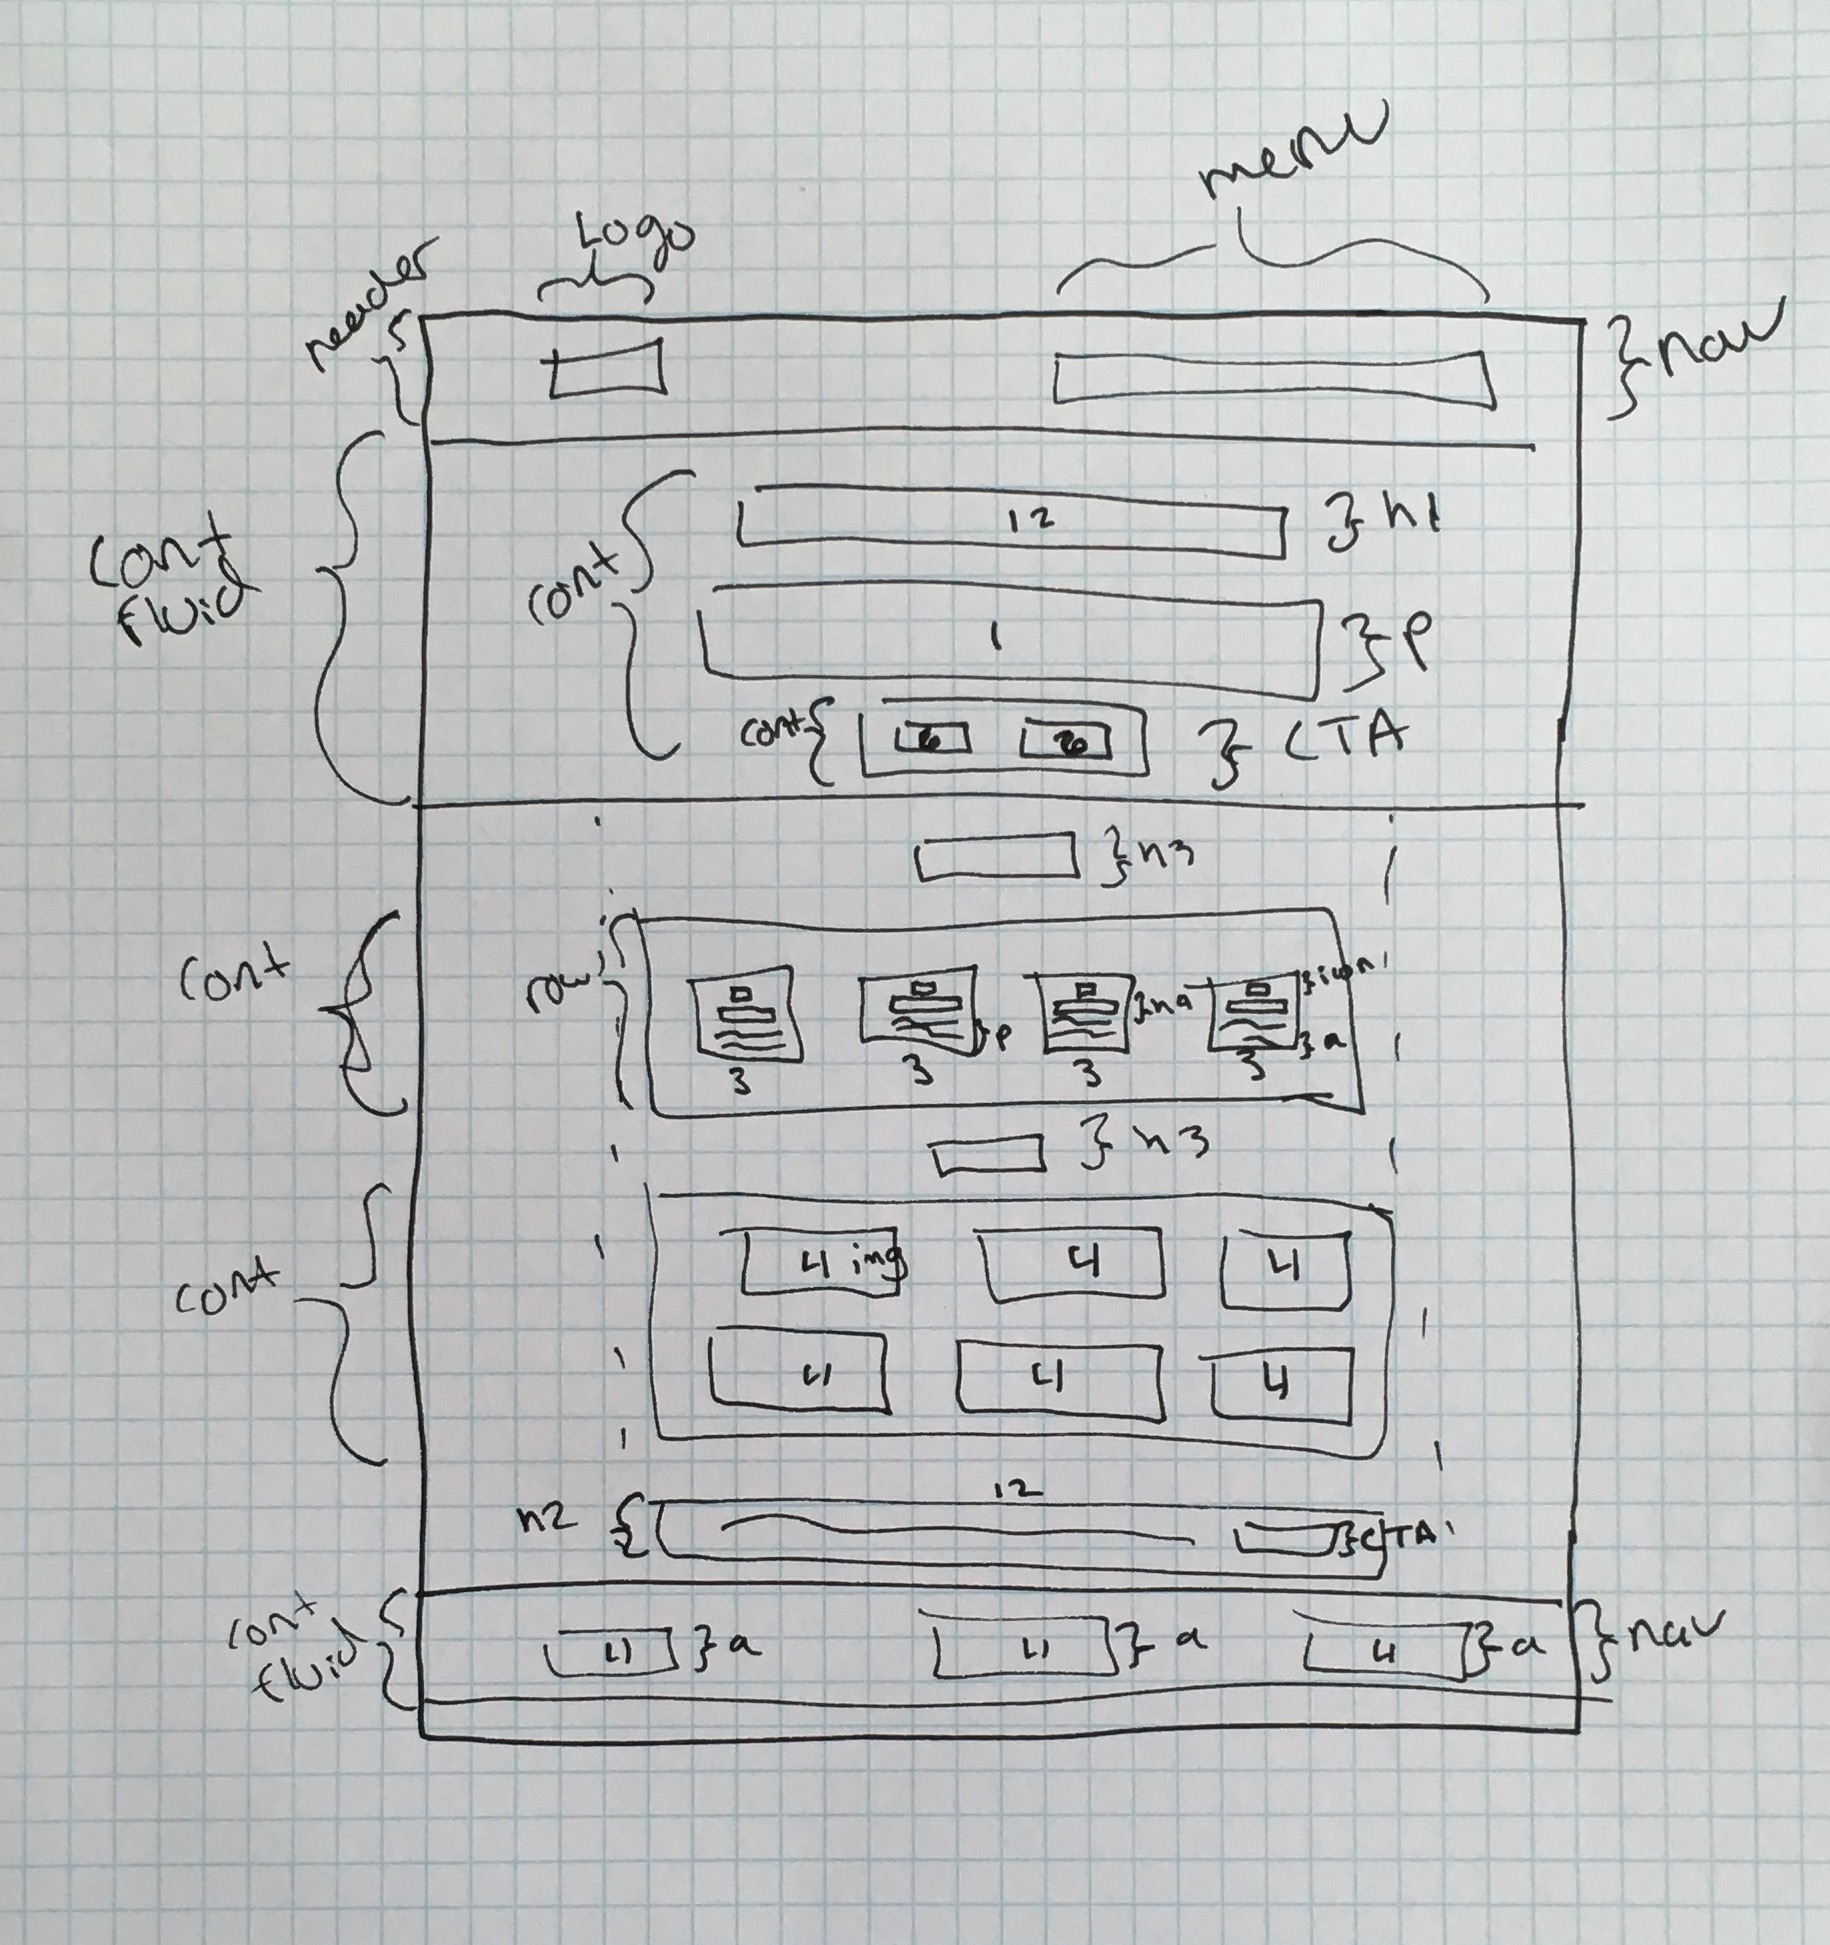 menu
Logo
header
nav
12
h1
cont
fluid
cont
1
p
cont
6
6
CTA
h3
cont
row
icon
p
a
3
3
3
3
h3
cont
4 img
4
4
4
4
4
12
h2
CTA
cont
fluid
4
a
4
a
4
a
nav